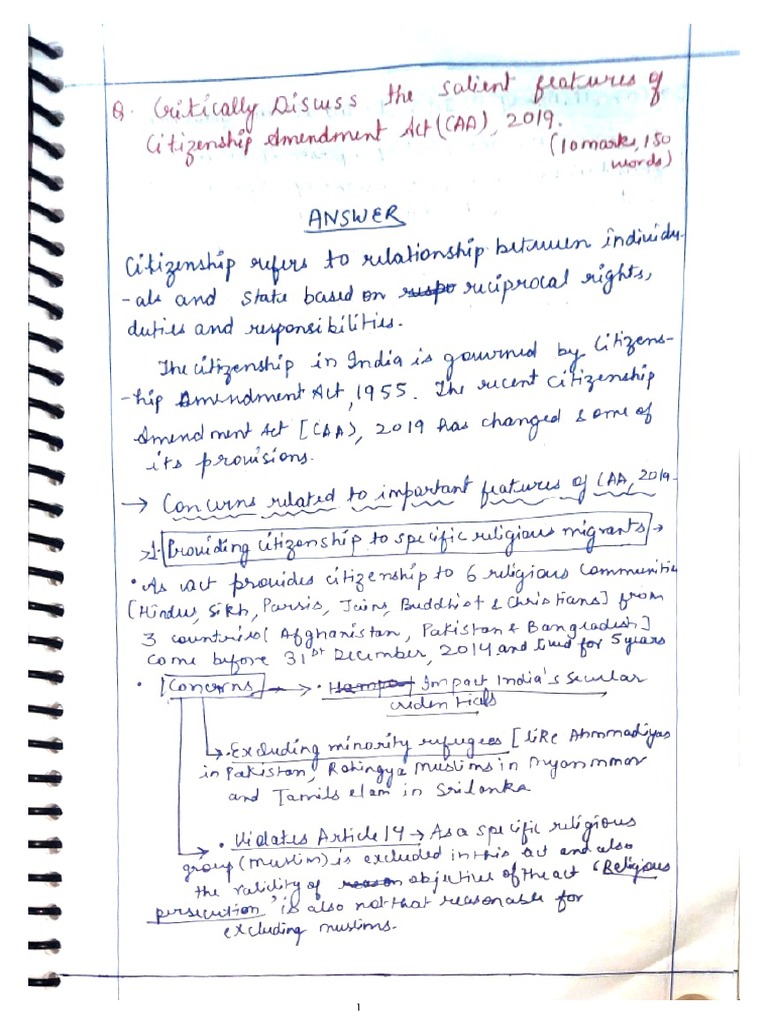 Q. Critically Discuss the salient features of
Citizenship Amendment Act (CAA), 2019.
(10 marks, 150
words)
ANSWER
Citizenship refers to relationship between individu-
-als and state based on respo reciprocal rights,
duties and responsibilities.
The citizenship in India is governed by Citizens-
-hip Amendment Act, 1955. The recent Citizenship
Amendment Act [CAA), 2019 has changed some of
its provisions.
→ Concerns related to important features of CAA, 2019-
>1. Providing citizenship to specific religious migrants →
• As act provides citizenship to 6 religious communitie
[Hindus, Sikh, Parsis, Jains, Buddhist & Christians] from
3 countries( Afghanistan, Pakistan & Bangladesh]
come before 31st December, 2014 and lived for 5 years
• [Concerns] → • Hampo Impact India's secular
credentials
→ • Excluding minority refugees [like Ahmmadiyas
in Pakistan, Rohingya Muslims in Myanmmar
and Tamils elam in Srilanka
→ • Violates Article 14 → As a specific religious
group (Muslim) is excluded in this act and also
the validity of reason objectives of the act 'Religious
persecution' is also not that reasonable for
excluding muslims.
1